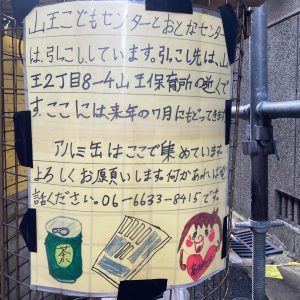 山王こどもセンターとおとなセンター
は、引こししています。引こし先は、山
王2丁目8-4山王保育所の近くで
す。ここには来年の7月にもどってきます
アルミ缶はここで集めています。
よろしくお願いします。何かあれば電
話ください。06-6633-8415です。
茶